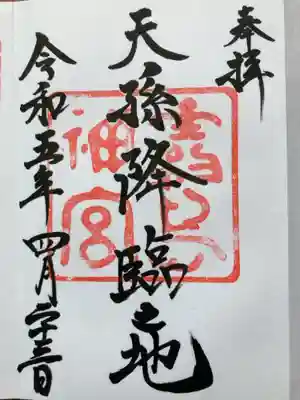 奉拝
天孫降臨之地
令和五年 四月二十三日
神宮